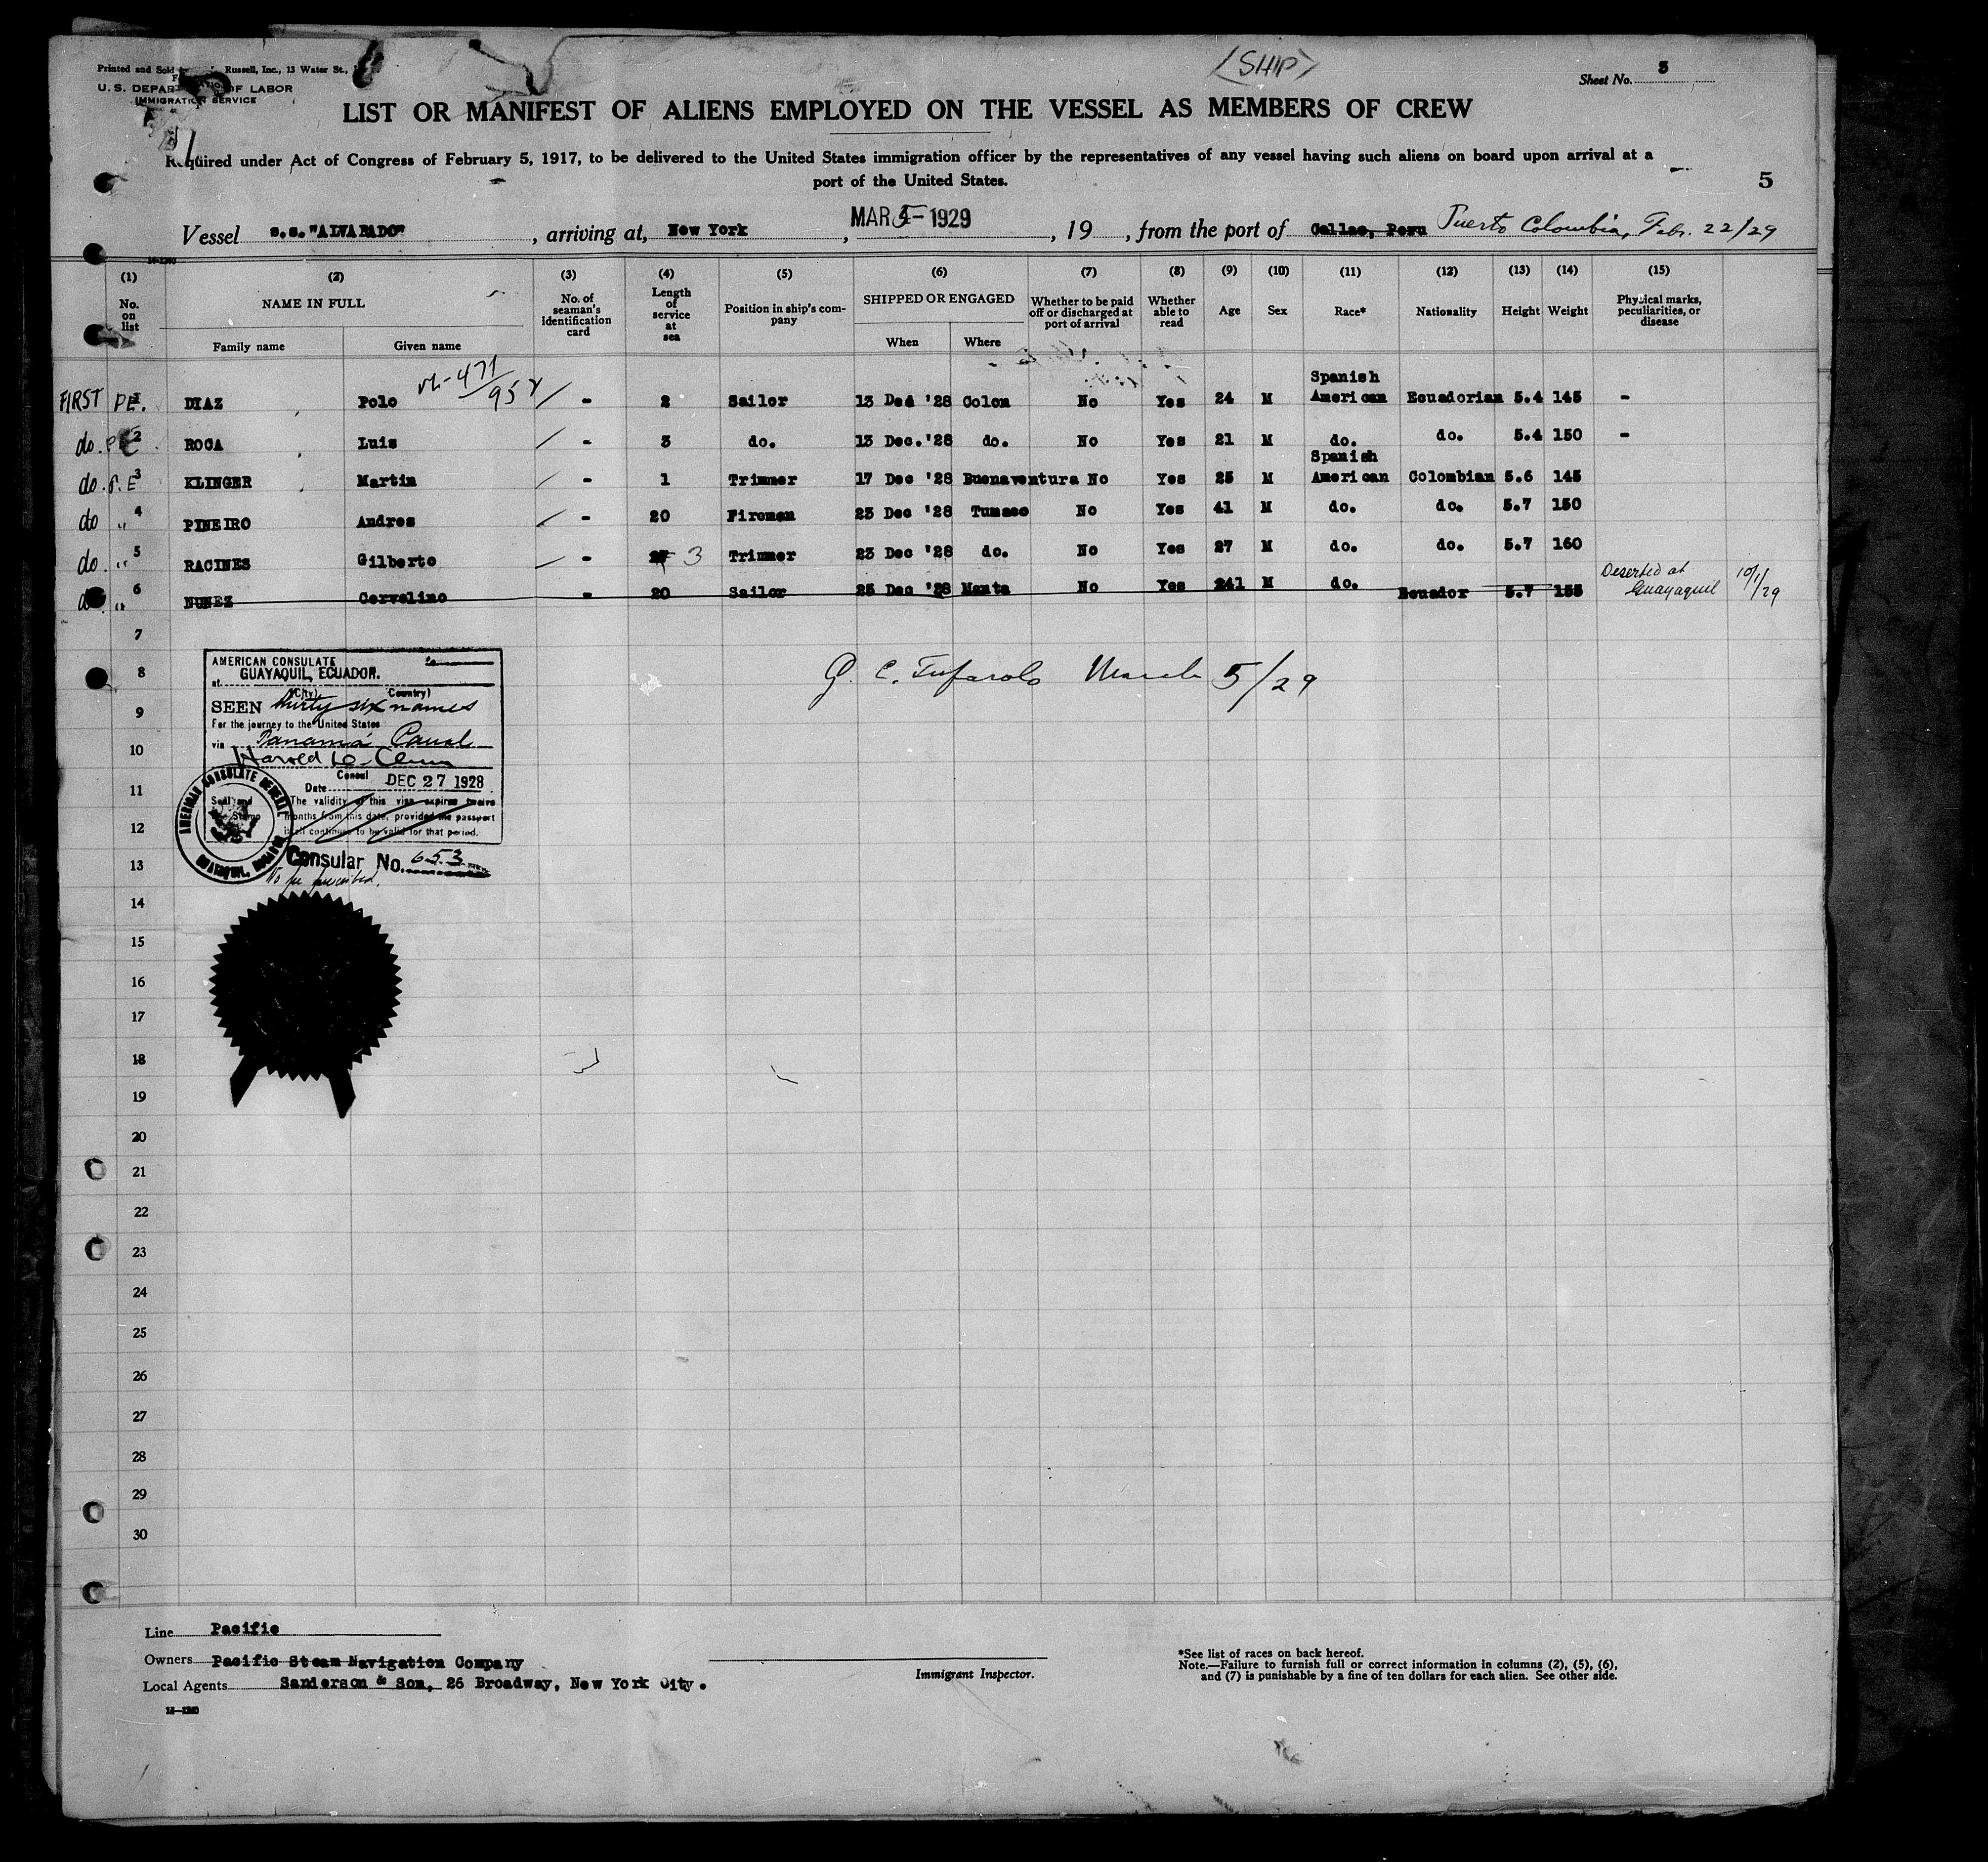 <SHIP>
Printed and Sold Russell, Inc., 13 Water St.,
Sheet No. 3
U. S. DEPARTMENT OF LABOR
IMMIGRATION SERVICE
LIST OR MANIFEST OF ALIENS EMPLOYED ON THE VESSEL AS MEMBERS OF CREW
Required under Act of Congress of February 5, 1917, to be delivered to the United States immigration officer by the representatives of any vessel having such aliens on board upon arrival at a
port of the United States.
5
Vessel s.s. "ALVARADO", arriving at, New York, MAR 5 - 1929, 19 , from the port of Callao, Peru Puerto Colombia, Febr. 22/29
(1) (2) (3) (4) (5) (6) (7) (8) (9) (10) (11) (12) (13) (14) (15)
No. on list NAME IN FULL No. of seaman's identification card Length of service at sea Position in ship's company SHIPPED OR ENGAGED Whether to be paid off or discharged at port of arrival Whether able to read Age Sex Race* Nationality Height Weight Physical marks, peculiarities, or disease
Family name Given name When Where
FIRST P.E. 1 DIAZ Polo 471/952 - 2 Sailor 13 Dec '28 Colon No Yes 24 M Spanish American Ecuadorian 5.4 145 -
do. P.E. 2 ROCA Luis - 3 do. 13 Dec. '28 do. No Yes 21 M do. do. 5.4 150 -
do. P.E. 3 KLINGER Martin - 1 Trimmer 17 Dec '28 Buenaventura No Yes 25 M Spanish American Colombian 5.6 145
do " 4 PINEIRO Andres - 20 Fireman 23 Dec '28 Tumaco No Yes 41 M do. do. 5.7 150
do. " 5 RACINES Gilberto - 27 3 Trimmer 23 Dec '28 do. No Yes 27 M do. do. 5.7 160
do " 6 NUNEZ Cervelino - 20 Sailor 25 Dec '28 Manta No Yes 241 M do. Ecuador 5.7 155 Deserted at Guayaquil 10/1/29
7
8
9
10
11
12
13
14
15
16
17
18
19
20
21
22
23
24
25
26
27
28
29
30
AMERICAN CONSULATE
at GUAYAQUIL, ECUADOR.
(City) (Country)
SEEN thirty six names
For the journey to the United States
via Panama Canal
Harold
Consul
Date DEC 27 1928
Seal and Stamp
The validity of this visa expires twelve
months from this date, provided the passport
shall continue to be valid for that period.
AMERICAN CONSULATE GENERAL
GUAYAQUIL, ECUADOR
Consular No. 653
No fee prescribed.
March 5/29
Line Pacific
Owners Pacific Steam Navigation Company
Local Agents Sanderson & Son, 26 Broadway, New York City.
Immigrant Inspector.
*See list of races on back hereof.
Note.—Failure to furnish full or correct information in columns (2), (5), (6),
and (7) is punishable by a fine of ten dollars for each alien. See other side.